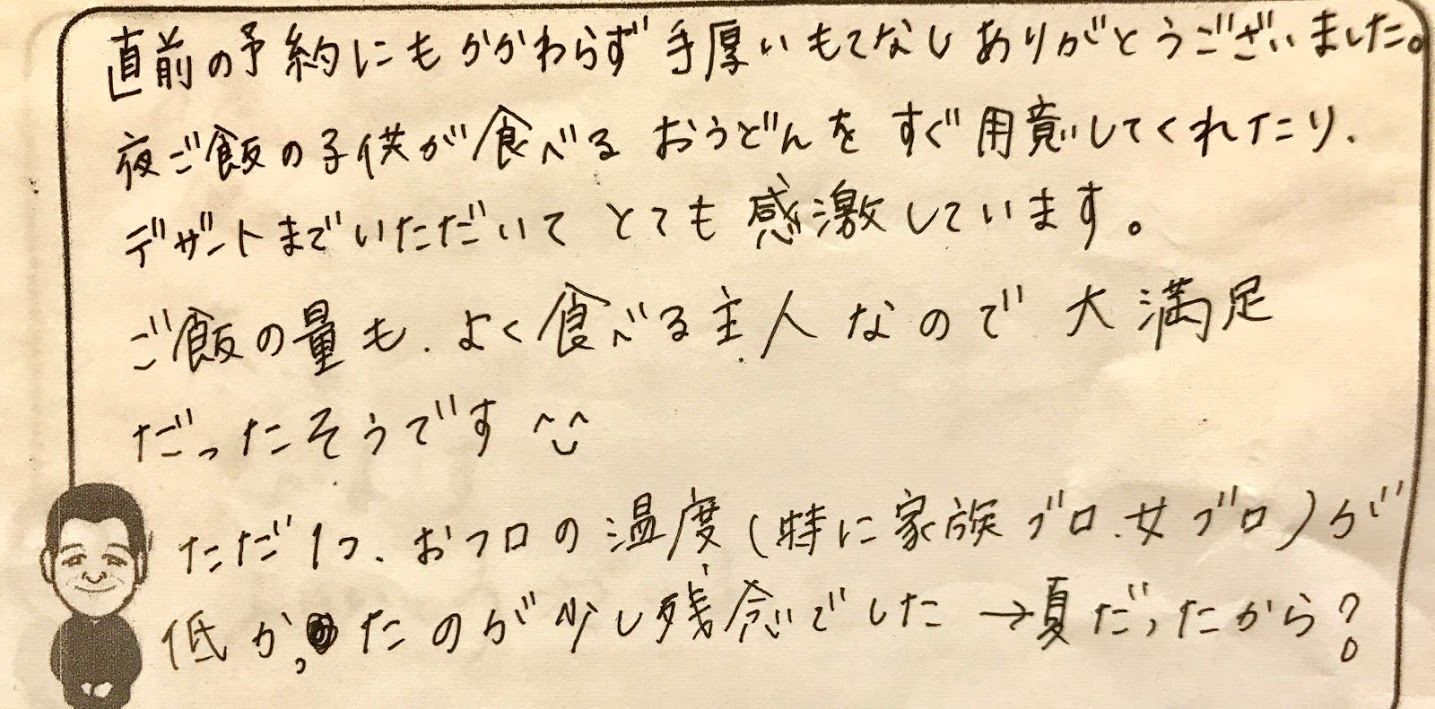 直前の予約にもかかわらず手厚いもてなしありがとうございました。
夜ご飯の子供が食べるおうどんをすぐ用意してくれたり、
デザートまでいただいてとても感激しています。
ご飯の量も、よく食べる主人なので大満足
だったそうです
ただ1つ、おフロの温度(特に家族ブロ、女ブロ)が
低かったのが少し残念でした→夏だったから?